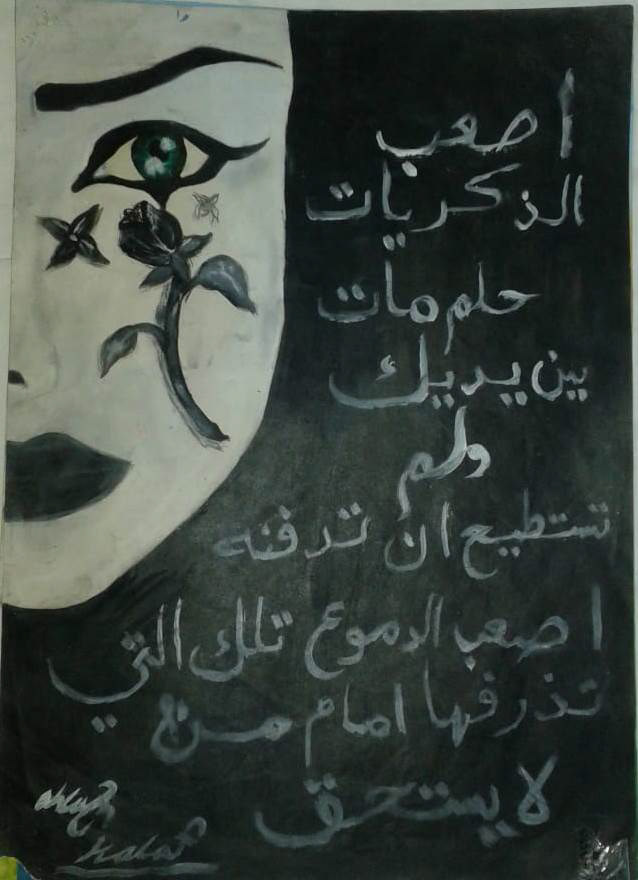 أصعب
الذكريات
حلم مات
بين يديك
ولم
تستطيع ان تدفنه
اصعب الدموع تلك التي
تذرفها امام من
لا يستحق